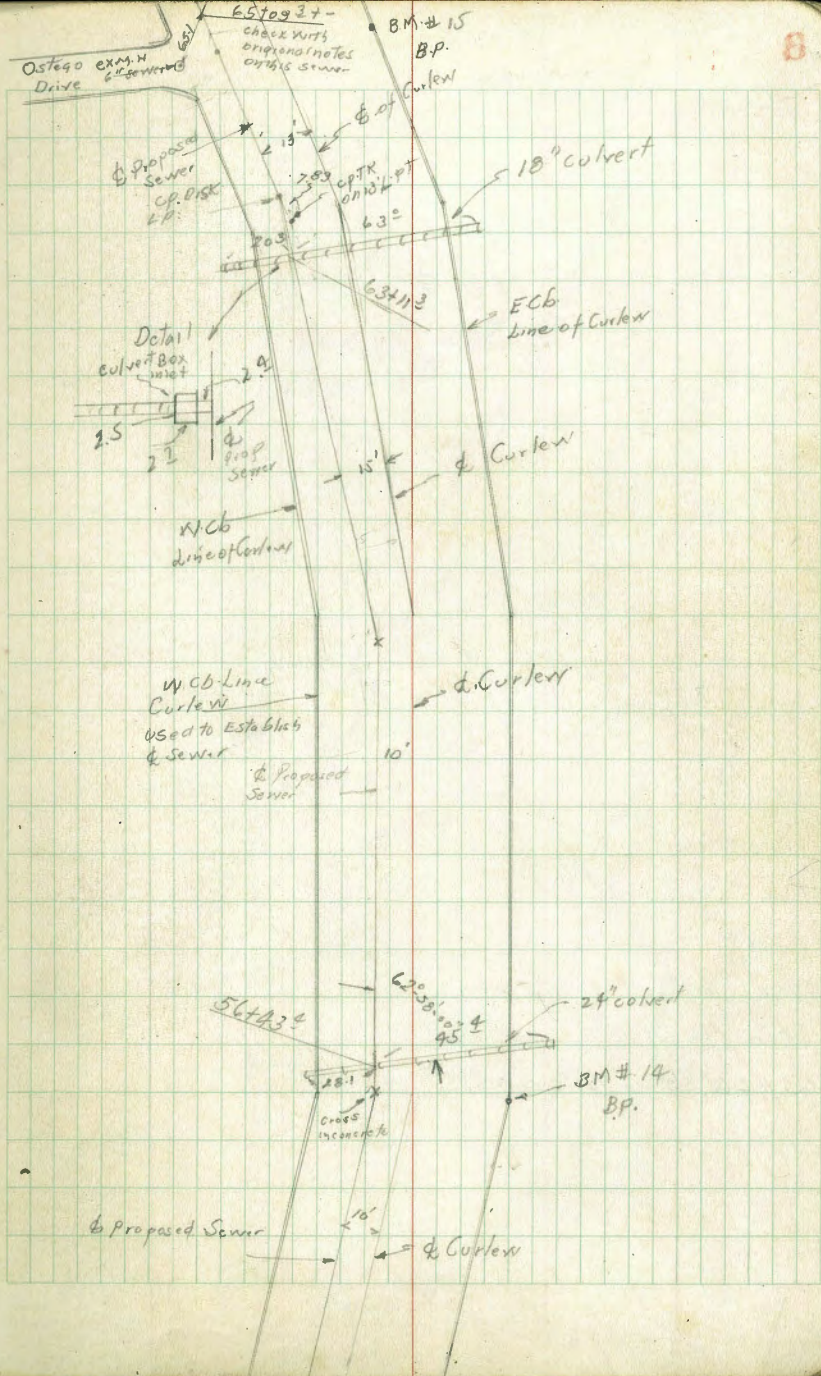 65+09 3 +-
check with
original notes
on this sewer
B.M.# 15
B.P.
8
65.1
Ostego ex M.H
Drive 6" sewer
℄ of Curlew
℄ Proposed
Sewer
13'
18" culvert
cp. Disk
L.P.
7.89
cp. TK
on 13' L. pt
63 0
20 3
63+11 3
E Cb
Line of Curlew
Detail
culvert Box
inlet
2 4
2.5
2 7
℄
Prop
Sewer
15'
℄ Curlew
W. Cb
Line of Curlew
W. Cb Line
Curlew
Used to Establish
℄ Sewer
℄ Curlew
10'
℄ Proposed
Sewer
62°-58'-00"
56+43 4
45 4
24" culvert
28.1
BM # 14
B.P.
Cross
in concrete
10'
℄ Proposed Sewer
℄ Curlew